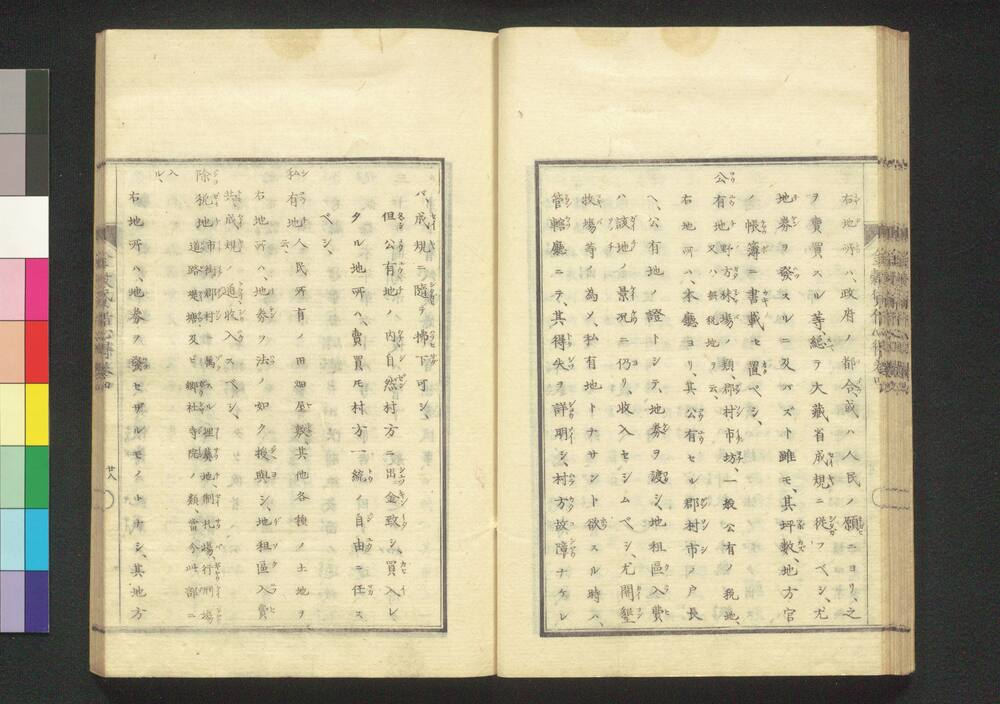 右地所ハ政府ノ都合、或ハ人民ノ願ニヨリ、之
ヲ賣買スル等、總テ大藏省成規ニ從フベシ、尤
地券ヲ發スルニ及バズト雖モ、其坪數、地方官
ノ帳簿ニ書載セ置ベシ、
公有地 野方秣場ノ類、郡村市坊、一般公有ノ税地、
又ハ無税地ヲ云、
右地所ハ、本廳ヨリ、其公有セル郡村市ノ戸長
ヘ、公有地ノ證トシテ、地券ヲ渡シ、地租區入費
ハ該地ノ景況ニ仍リ、收入セシムベシ、尤開墾
牧場等ノ為メ、私有地トナサント欲スル時ハ、
管轄廳ニテ、其得失ヲ詳明シ、村方故障ナケレ
バ、成規ニ隨テ拂下可シ、
但シ公有地ノ内、自然村方ニ出金致シ、買入レ
タル地所ハ、賣買モ村方一統ノ自由ニ任ス
ベシ、
私有地 人民所有ノ田畑屋敷、其他各種ノ土地ヲ
云、
右地所ハ、地券ヲ法ノ如ク授與シ、地租區入費
共、成規ノ通收入スベシ、
除税地 市街郡村ニ屬スル埋墓地、制札場、行刑場
道路堤塘、及ビ郷社寺院ノ類、當今此部ニ
入ル、
右地所ハ、地券ヲ發セザルモノトナシ、其地方
廿八